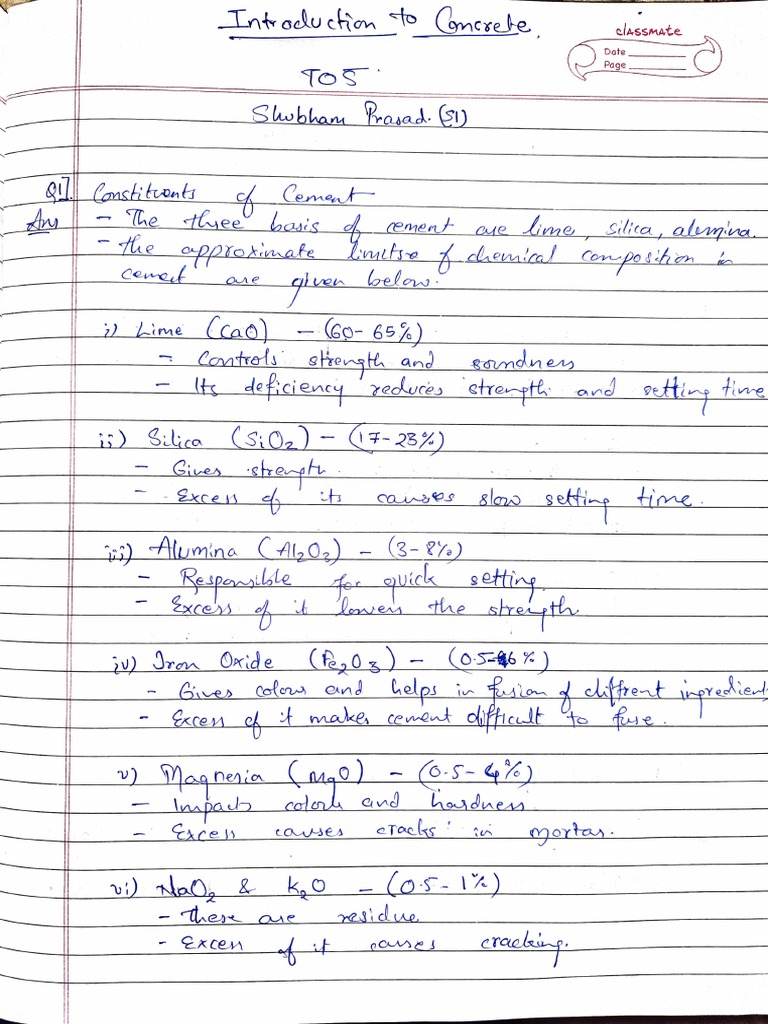 Introduction to Concrete.
classmate
Date
Page
TOS
Shubham Prasad. (51)
Q1]. Constituents of Cement
Ans - The three basis of cement are lime, silica, alumina.
- the approximate limits of chemical composition in
cement are given below.
i) Lime (CaO) - (60-65%)
- Controls strength and soundness
- Its deficiency reduces strength and setting time
ii) Silica (SiO2) - (17-23%)
- Gives strength.
- Excess of its causes slow setting time.
iii) Alumina (Al2O3) - (3-8%)
- Responsible for quick setting
- Excess of it lowers the strength
iv) Iron Oxide (Fe2O3) - (0.5-6%)
- Gives colour and helps in fusion of diffrent ingredients
- Excess of it makes cement difficult to fuse.
v) Magnesia (MgO) - (0.5-4%)
- Impacts colour and hardness
- Excess causes cracks in mortar.
vi) NaO2 & K2O - (0.5-1%)
- These are residue
- Excess of it causes cracking.